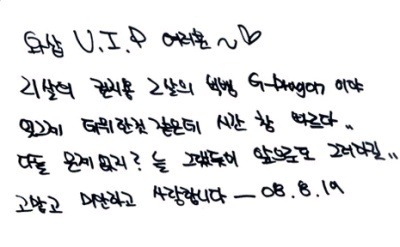 와삽 V.I.P 여러분 ~♡
21살의 권지용 2살의 빅뱅 G-Dragon 이야
엊그제 데뷔한것 같은데 시간 참 빠르다 ..
다들 문제없지? 늘 그랬듯이 앞으로도 그러하길 ..
고맙고 미안하고 사랑합니다 — 08.8.19